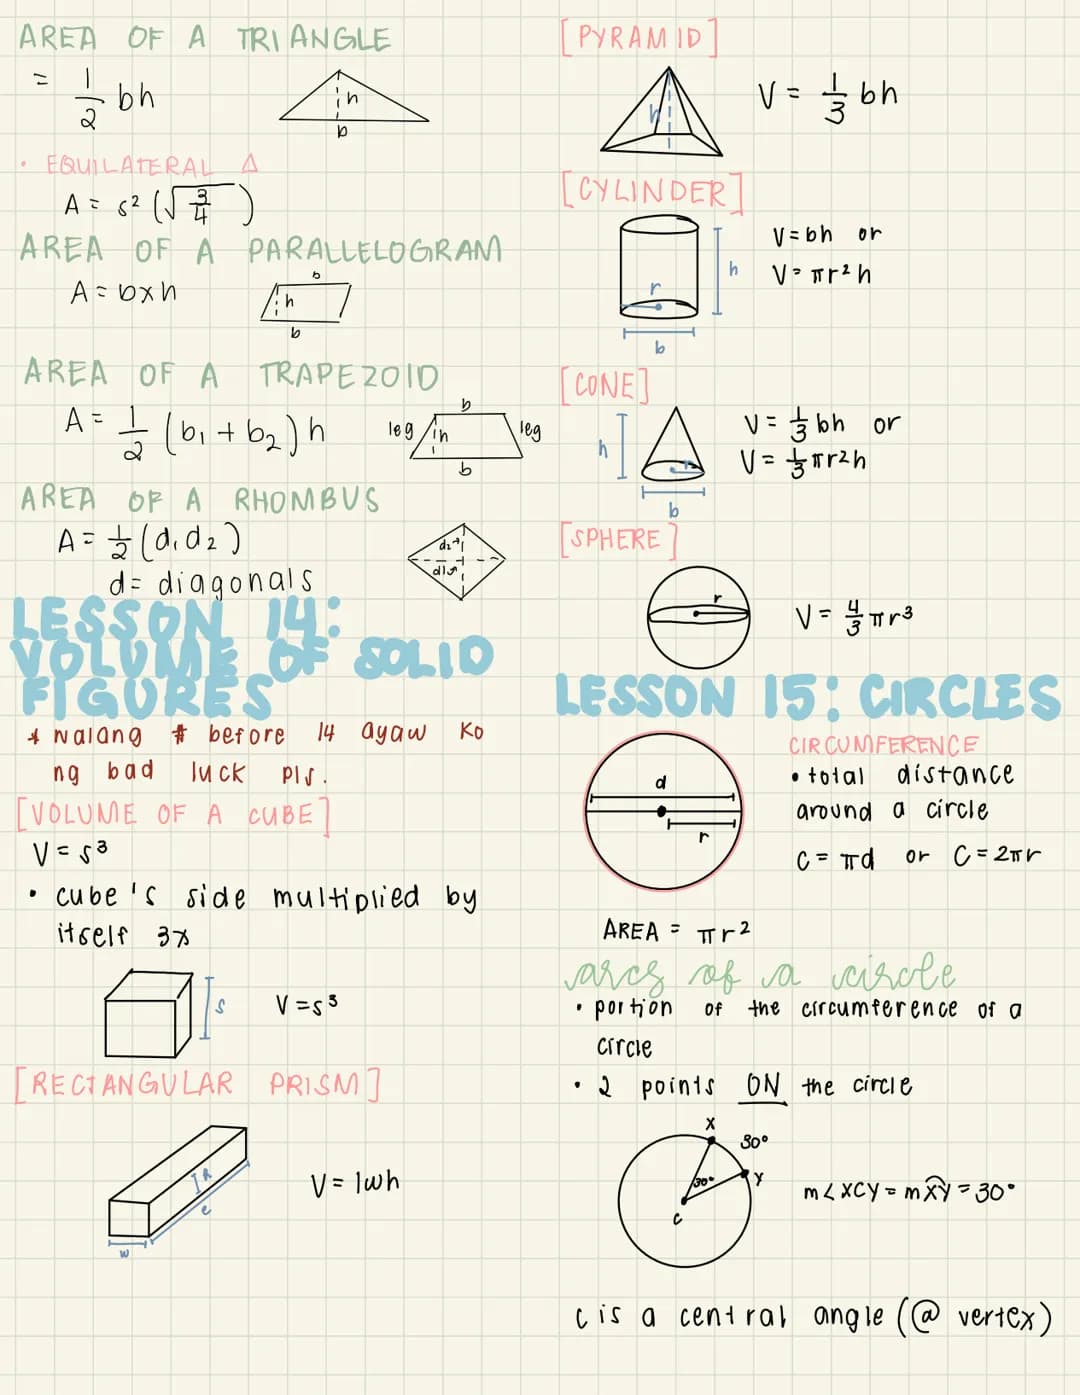 AREA OF A TRIANGLE
= 1/2 bh
h
b
• EQUILATERAL Δ
A = s² (√3/4)
AREA OF A PARALLELOGRAM
A = b x h
b
h
b
AREA OF A TRAPEZOID
A = 1/2 (b₁ + b₂) h
b
leg
h
leg
b
AREA OF A RHOMBUS
A = 1/2 (d₁ d₂)
d = diagonals
d₂
d1
LESSON 14:
VOLUME OF SOLID
FIGURES
* Walang # before 14 ayaw ko
ng bad luck pls.
[VOLUME OF A CUBE]
V = s³
• cube's side multiplied by
itself 3x
s
V = s³
[RECTANGULAR PRISM]
h
l
w
V = lwh
[PYRAMID]
h
V = 1/3 bh
[CYLINDER]
V = bh or
V = πr²h
h
r
b
[CONE]
h
r
b
V = 1/3 bh or
V = 1/3 πr2h
[SPHERE]
r
V = 4/3 πr³
LESSON 15: CIRCLES
CIRCUMFERENCE
• total distance
around a circle
C = πd or C = 2πr
d
r
AREA = πr²
arcs of a circle
• portion of the circumference of a
circle
• 2 points ON the circle
X
30°
Y
30°
C
m∠XCY = mX͡Y = 30°
C is a central angle (@ vertex)